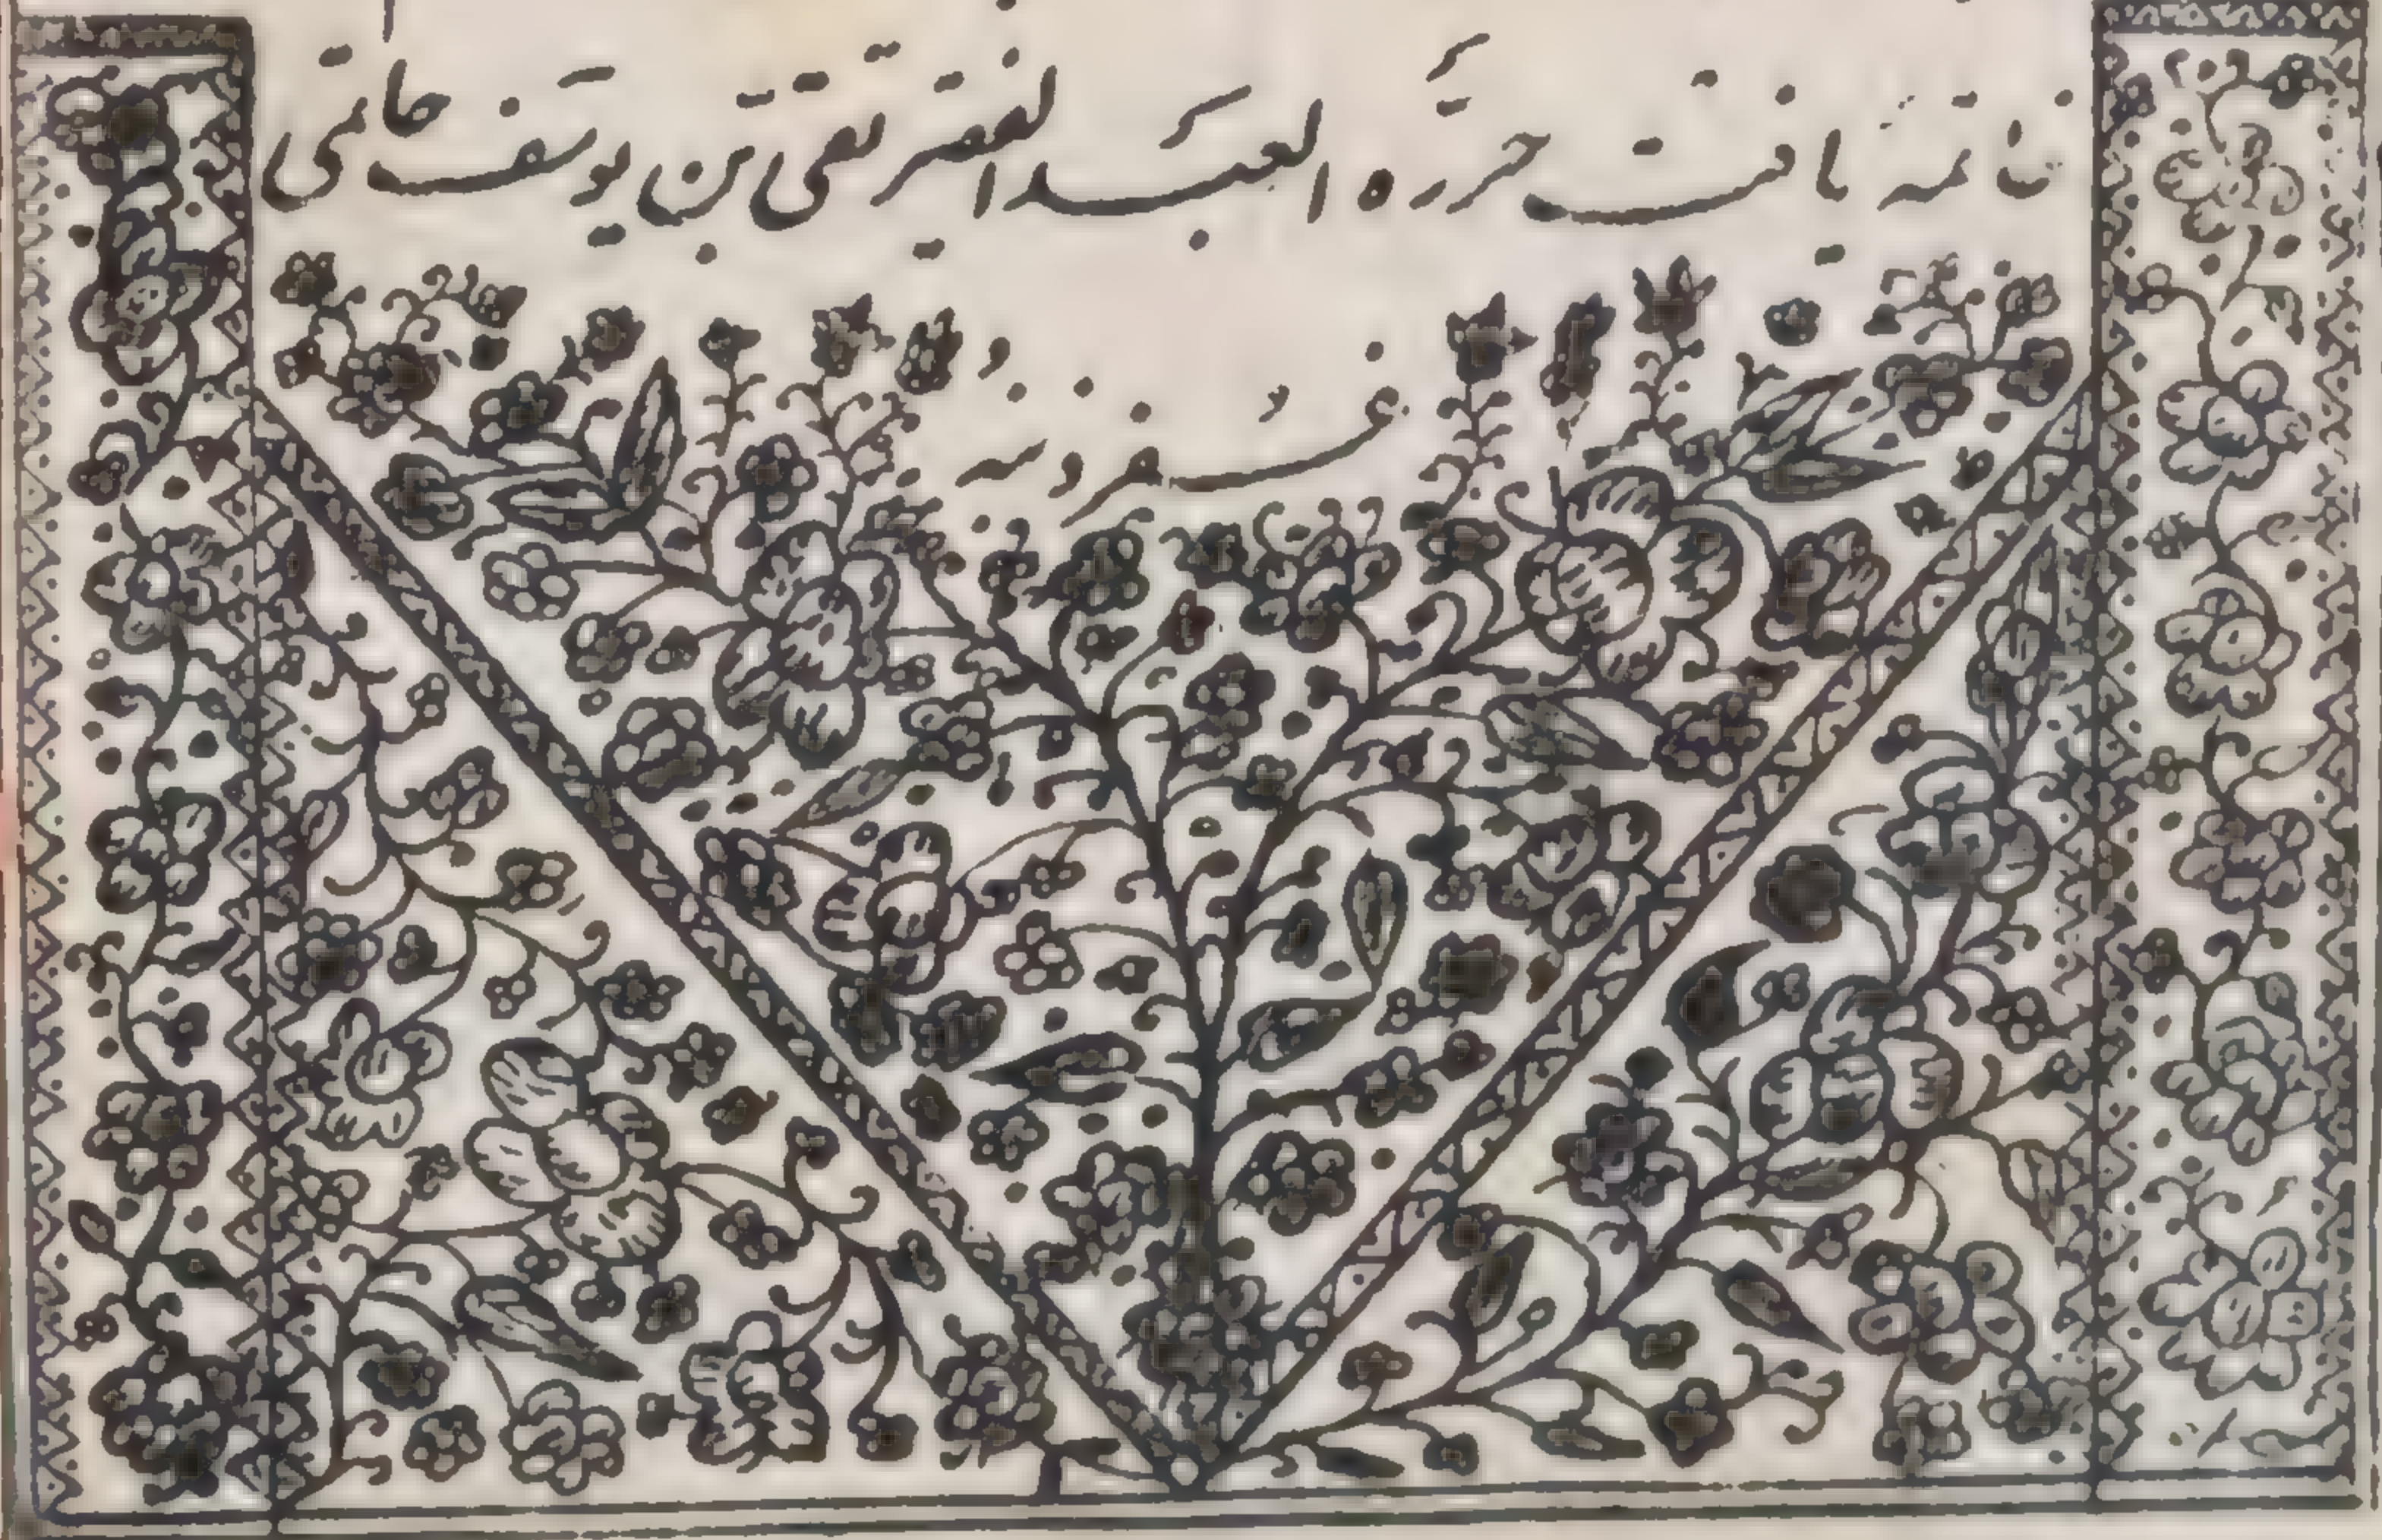 خاتمه یافت حرره العبد الفقیر تقی بن یوسف حاتمی
غفر ذنوبه